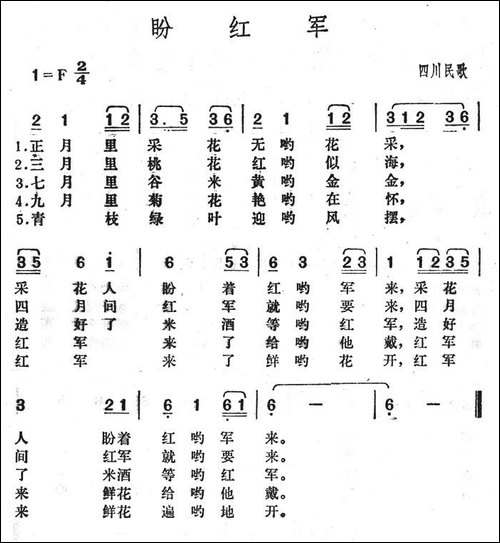 盼 红 军
1=F 2/4
四川民歌
2 1 12 | 3.5 36 | 2 1 12 | 312 36 |
1.正 月 里 采 花 无 哟 花 采,
2.三 月 里 桃 花 红 哟 似 海,
3.七 月 里 谷 米 黄 哟 金 金,
4.九 月 里 菊 花 艳 哟 在 怀,
5.青 枝 绿 叶 迎 哟 风 摆,
35 6 i | 6 53 | 6 3 23 | 1 1235 |
采 花 人 盼 着 红 哟 军 来, 采 花
四 月 间 红 军 就 哟 要 来, 四 月
造 好 了 米 酒 等 哟 红 军, 造 好
红 军 来 了 给 哟 他 戴, 红 军
红 军 来 了 鲜 哟 花 开, 红 军
3 21 | 6 1 61 | 6 — | 6 — |
人 盼着 红 哟 军 来。
间 红军 就 哟 要 来。
了 米酒 等 哟 红 军。
来 鲜花 给 哟 他 戴。
来 鲜花 遍 哟 地 开。